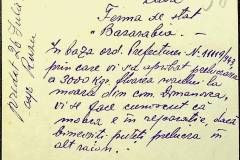 Ferma de stat
"Basarabia"
In baza ord. Prefecturei No. 11119/943
prin care vi s'a aprobat prelucrarea
a 3000 kgr. floarea soarelui la
moara din com. Ermanovca,
vi se face cunoscut că
moara e în reparație, dacă
binevoiti puteti prelucra în
alt raion.